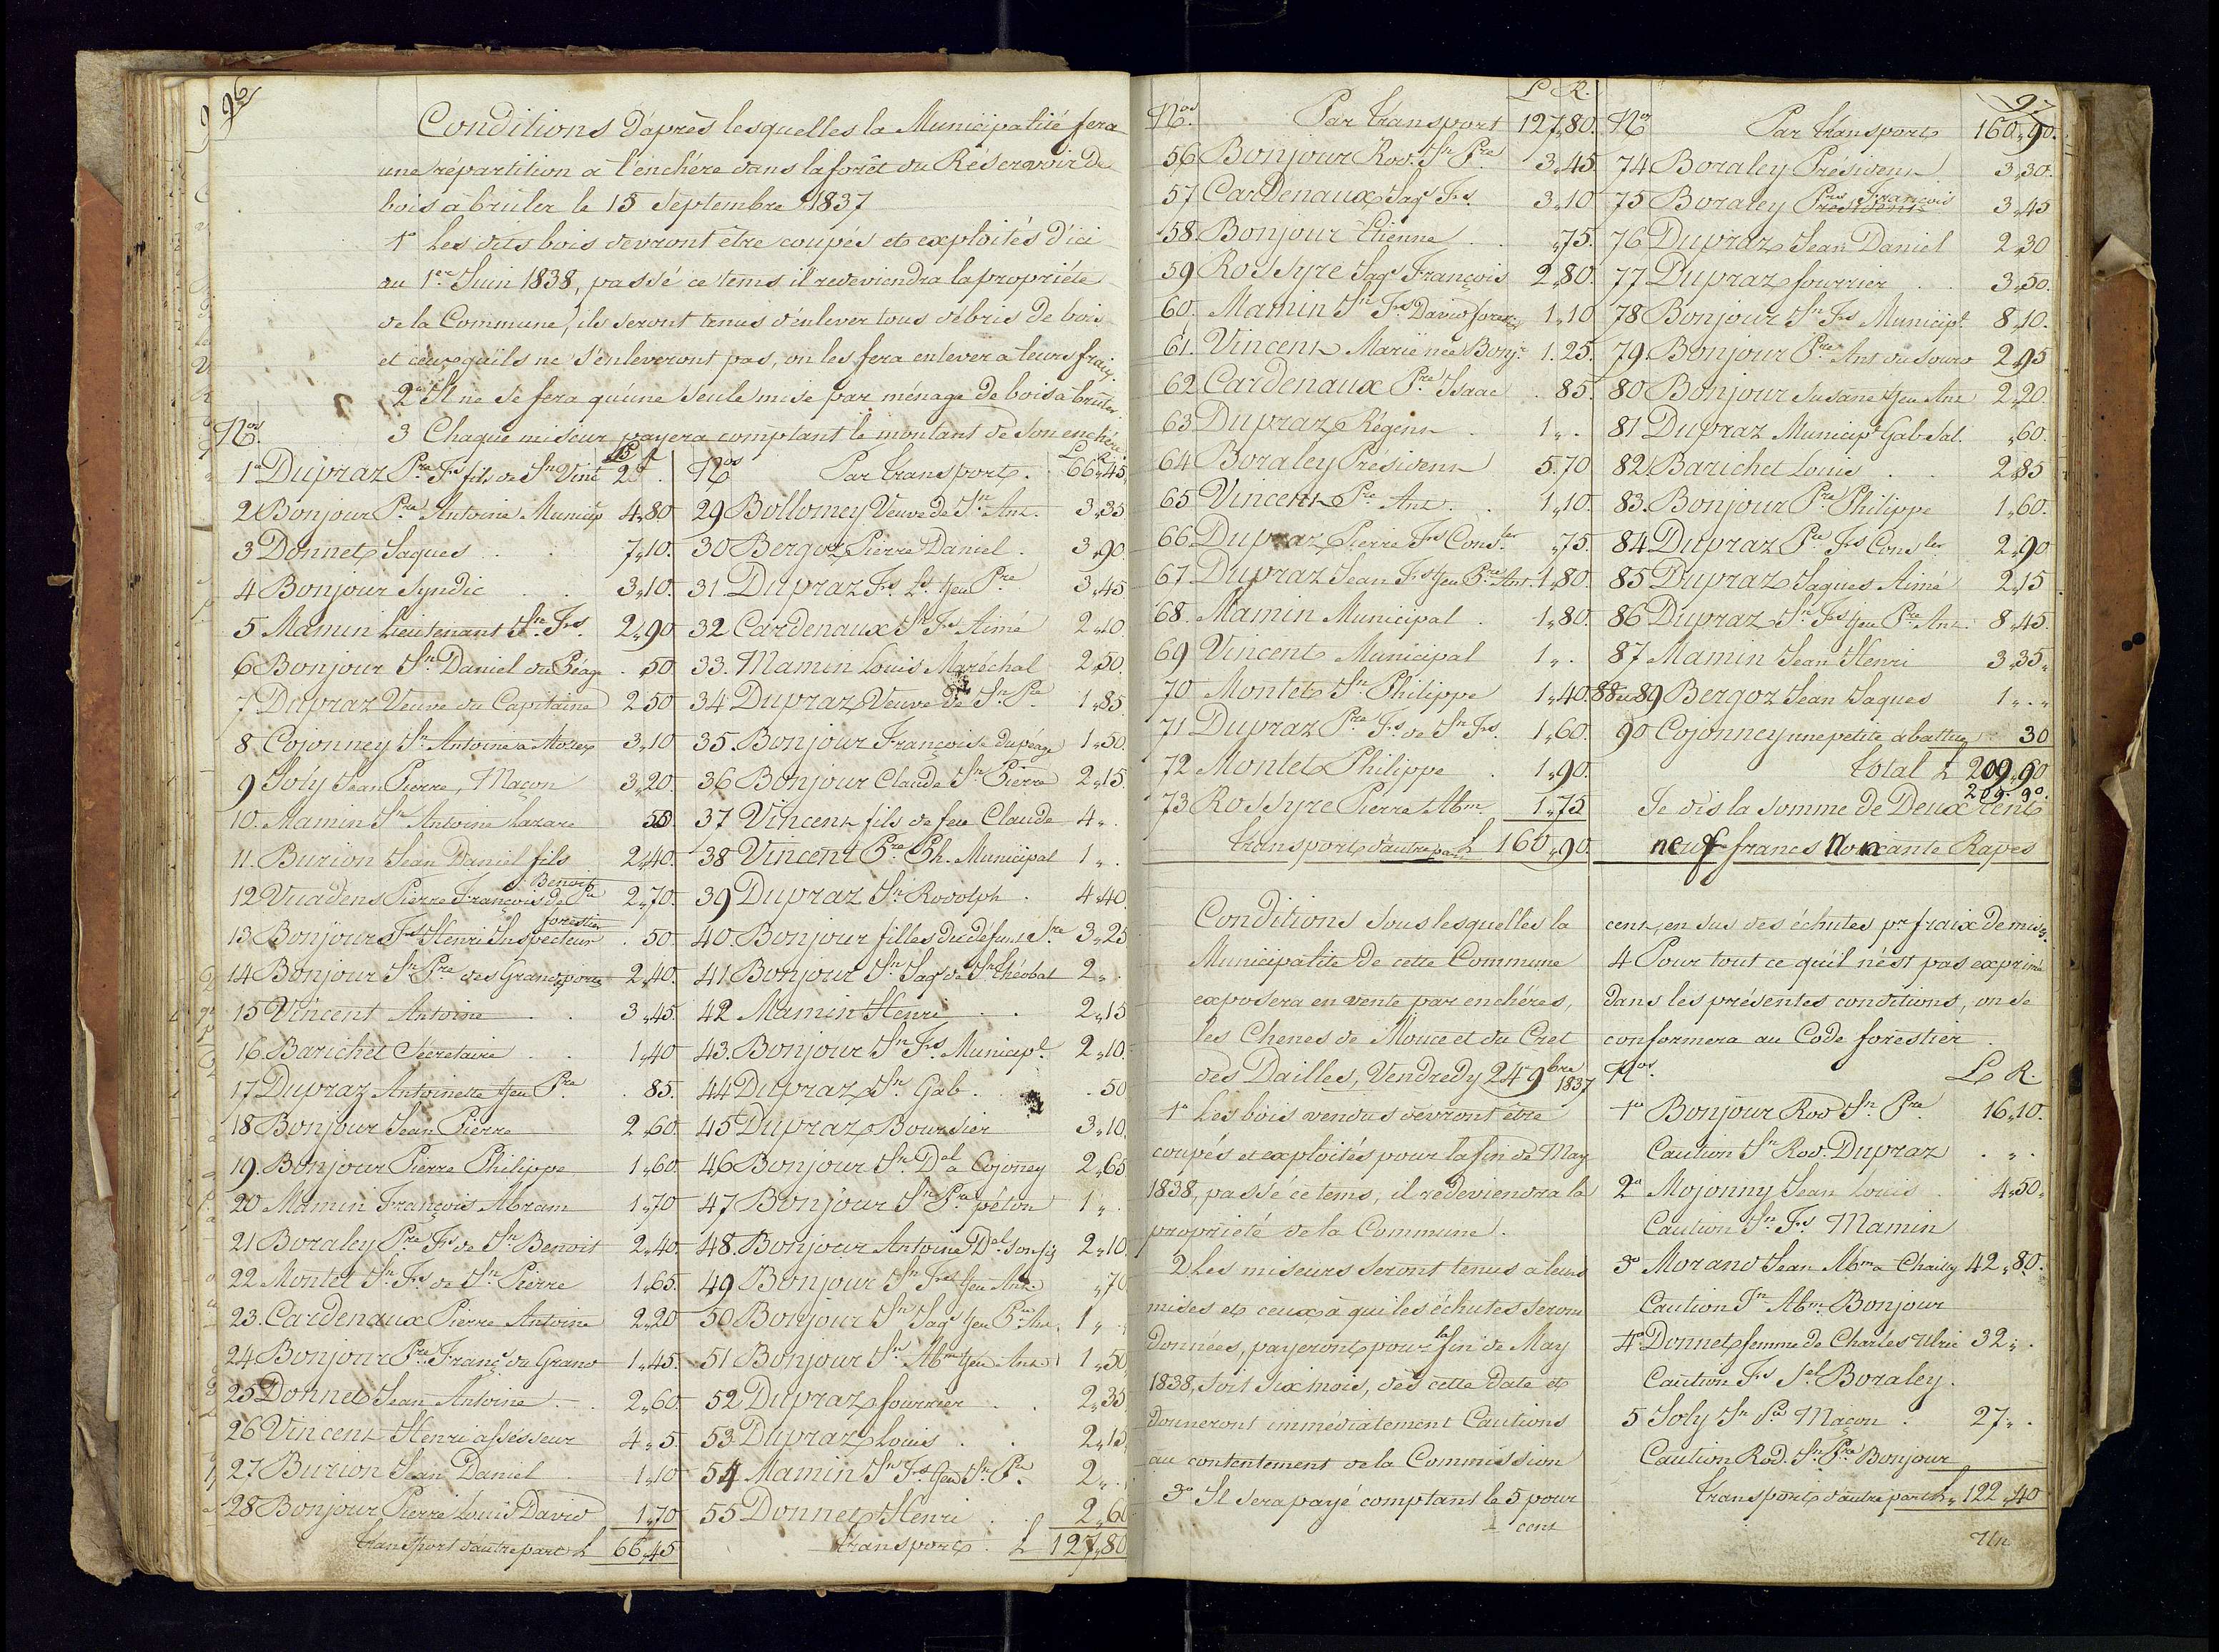 96
Conditions d'après lesquelles la Municipalité fera
une répartition a l'enchére dans la forêt du Réservoir De
bois à brûler le 15 Septembre 1837
1° Les dits bois devront être coupés et exploités d'ici
au 1er Juin 1838, passé ce tems il redeviendra la propriéte
de la Commune, ils seront tenus d'enlever tous débris de bois
et ceux qu'ils ne s'enleveront pas, on les fera enlever a leurs fraix.
2° Il ne se fera qu'une seule mise par ménage de bois à brûler.
3 Chaque miseur payera comptant le montant de son enchére.
Nos. L R
1a Dupraz Pre Frs fils de Jn Vinc 2 " .
2 Bonjour Pre Antoine Municip 4,,80
3 Donnet Jaques . . 7,,10.
4 Bonjour Syndic . . 3,,10.
5 Mamin Lieutenant Jn Frs. 2,,90
6 Bonjour Jn Daniel du Péage . 50
7 Dupraz Veuve du Capitaine 2 50
8. Cojonney Jn Antoine a 3,,10
9 Joly Jean Pierre, Maçon 3,,20.
10. Mamin Jn Antoine Lazare 50.
11. Burion Jean Daniel fils 2,,40.
12 Vuadens Pierre François de Jn Benoit 2,,70.
13 Bonjour Frs Henri Inspecteur forestier . 50.
14 Bonjour Jn Pre des Grandsports 2,,40.
15 Vincent Antoine . . 3,,45.
16. Barichet Secretaire . . 1,,40
17 Dupraz Antoinette feu Pre . 85.
18 Bonjour Jean Pierre 2,,60.
19. Bonjour Pierre Philippe 1,,60.
20 Mamin François Abram 1,,70
21 Boraley Pre Frs de Jn Benoit 2,,40.
22 Montet Jn Frs de Jn Pierre 1,,65.
23. Cardenaux Pierre Antoine 2,,20
24 Bonjour Pre Franç du Grand 1,,45.
25 Donnet Jean Antoine . . 2,,60.
26 Vincent Henri assesseur 4,,5.
27 Burion Jean Daniel . 1,,10
28 Bonjour Pierre Louis David 1,,70
transport d'autre part L 66,,45
Nos Par transport . L R. 66,,45.
29 Bollomey Veuve de Jn Ant. 3,,35
30 Bergoz Pierre Daniel . 3,,90.
31 Dupraz Frs Ls feu Pre 3,,45
32 Cardenaux Jn Frs Aimé 2,,10.
33. Mamin Louis Maréchal 2,,50.
34 Dupraz Veuve de Jn Pre 1,,85.
35. Bonjour Françoise du péage 1,,50.
36 Bonjour Claude Jn Pierre 2,,15.
37 Vincent fils de feu Claude 4,, .
38 Vincent Pre Ph. Municipal 1 ,, .
39 Dupraz Jn Rodolph . 4,,40.
40. Bonjour filles du défunt Jn Pre 3,,25
41 Bonjour Jn Jaqs de Jn Théobal 2,, .
42 Mamin Henri . . 2,,15
43. Bonjour Jn Frs. Municipl. 2,,10.
44 Dupraz Jn Gab . . 50
45 Dupraz Boursier 3,,10.
46 Bonjour Jn Del a Cojoney 2,,65
47 Bonjour Jn Pre péton 1 ,, .
48. Bonjour Antoine Del son fils 2,,10.
49 Bonjour Jn Frs feu Ant. ,,70
50 Bonjour Jn Jaqs feu Pre Ant. 1 ,, .
51 Bonjour Jn Abm feu Ant. 1,,50
52 Dupraz fourrier . . 2,,35
53 Dupraz Louis . . 2,,15.
54 Mamin Jn Frs feu Jn Pre 2,, .
55 Donnet Henri . . 2,,60
transport . L 127,,80
97
Nos. Par transport L R. 127,,80.
56 Bonjour Rod. Jn Pre 3,,45.
57 Cardenaux Jaqs Frs. 3,,10
58. Bonjour Etienne . . ,,75.
59 Rossyre Jaqs François 2,,80.
60. Mamin Jn Frs David 1,,10
61. Vincent Marie née Bonjr 1.25.
62 Cardenaux Pre Isaac . 85.
63 Dupraz Régent . 1,, .
64 Boraley Président 5.70
65 Vincent Pre Ant. . 1,,10.
66 Dupraz Pierre Frs Consler ,,75.
67 Dupraz Jean Frs feu Pre Ant. 1,,80.
68. Mamin Municipal . 1,,80.
69 Vincent Municipal 1 ,, .
70 Montet Jn Philippe 1,,40.
71 Dupraz Pre Frs. de Jn Frs. 1,,60.
72 Montet Philippe . 1,,90.
73 Rossyre Pierre Abm. 1,,75
transport d'autre part L 160,,90.
Nos Par transport 160,,90.
74 Boraley Président 3,,30.
75 Boraley Président Pre François 3,,45
76 Dupraz Jean Daniel 2,,30
77 Dupraz fourrier . . 3,,50.
78 Bonjour Jn Frs Municipl. 8,,10.
79. Bonjour Pre Ant du sourd 2,,95
80 Bonjour Susane feu Ant 2,,20
81 Dupraz Municipl Gab Sal. ,,60.
82. Barichet Louis . . 2,,85
83. Bonjour Pre Philippe 1,,60.
84 Dupraz Pre Frs Consler 2,,90
85 Dupraz Jaques Aimé 2,,15
86 Dupraz Jn Frs feu Pre Ant. 8,,45.
87 Mamin Jean Henri 3,,35,,
88 et 89 Bergoz Jean Jaques 1 ,, . ,,
90 Cojonney une petite abattue 30
total L 209,,90
209 90.
Je dis la somme de Deux Cent
neuf francs Nonante Rapes
Conditions sous lesquelles la
Municipalite de cette Commune
exposera en vente par enchéres,
les Chenes de Mouce et du Cret
des Dailles, Vendredy 24 9bre 1837
1° Les bois vendus devront être
coupés et exploités pour la fin de May
1838, passé ce tems, il redeviendra la
propriété de la Commune.
2 Les miseurs seront tenus a leurs
mises et ceux à qui les échutes seront
données, payeront pour la fin de May
1838, soit six mois, dès cette date et
donneront immédiatement Cautions
au contentement de la Commission
3° Il sera payé comptant le 5 pour
cent
cent, en sus des échutes pr fraix de mises.
4 Pour tout ce qu'il n'est pas exprimé
dans les présentes conditions, on se
conformera au Code forestier .
Nos. L R.
1a Bonjour Rod Jn Pre 16,,10.
Caution Jn Rod. Dupraz . ,, .
2a Mojonny Jean Louis . 4,,50,,
Caution Jn Frs Mamin
3° Morand Jean Abm a Chailly 42,,80.
Caution Jn Abm Bonjour
4° Donnet femme de Charles Ulric 32,, .
Caution Frs Sel Boraley.
5 Joly Jn Pre Maçon . 27,, .
Caution Rod. Jn Pre Bonjour
transport d'autre part L,, 122,,40
Un